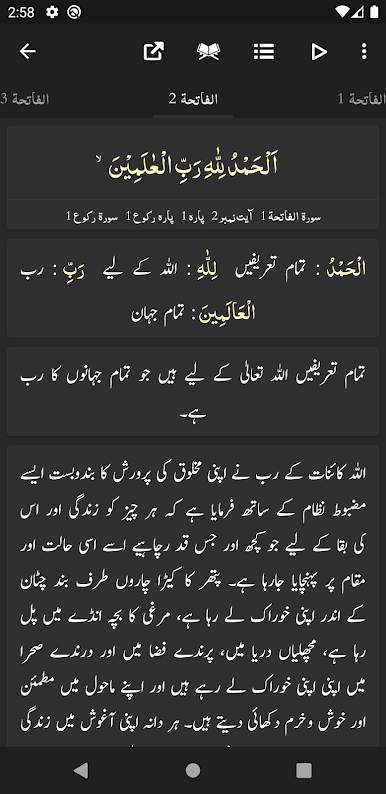 2:58
الفاتحة 1
الفاتحة 2
الفاتحة 3
اَلْحَمْدُ لِلّٰهِ رَبِّ الْعٰلَمِیْنَ ۙ
سورۃ الفاتحة 1 آیت نمبر 2 پارہ 1 پارہ رکوع 1 سورۃ رکوع 1
الْحَمْدُ : تمام تعریفیں لِلّٰهِ : اللہ کے لیے رَبِّ : رب
الْعَالَمِينَ : تمام جہان
تمام تعریفیں اللہ تعالیٰ کے لیے ہیں جو تمام جہانوں کا رب
ہے۔
اللہ کائنات کے رب نے اپنی مخلوق کی پرورش کا بندوبست ایسے
مضبوط نظام کے ساتھ فرمایا ہے کہ ہر چیز کو زندگی اور اس
کی بقا کے لیے جو کچھ اور جس قدر چاہیے اسے اسی حالت اور
مقام پر پہنچایا جارہا ہے۔ پتھر کا کیڑا چاروں طرف بند چٹان
کے اندر اپنی خوراک لے رہا ہے، مرغی کا بچہ انڈے میں پل
رہا ہے، مچھلیاں دریا میں، پرندے فضا میں اور درندے صحرا
میں اپنی اپنی خوراک لے رہے ہیں اور اپنے ماحول میں مطمئن
اور خوش وخرم دکھائی دیتے ہیں۔ ہر دانہ اپنی آغوش میں زندگی